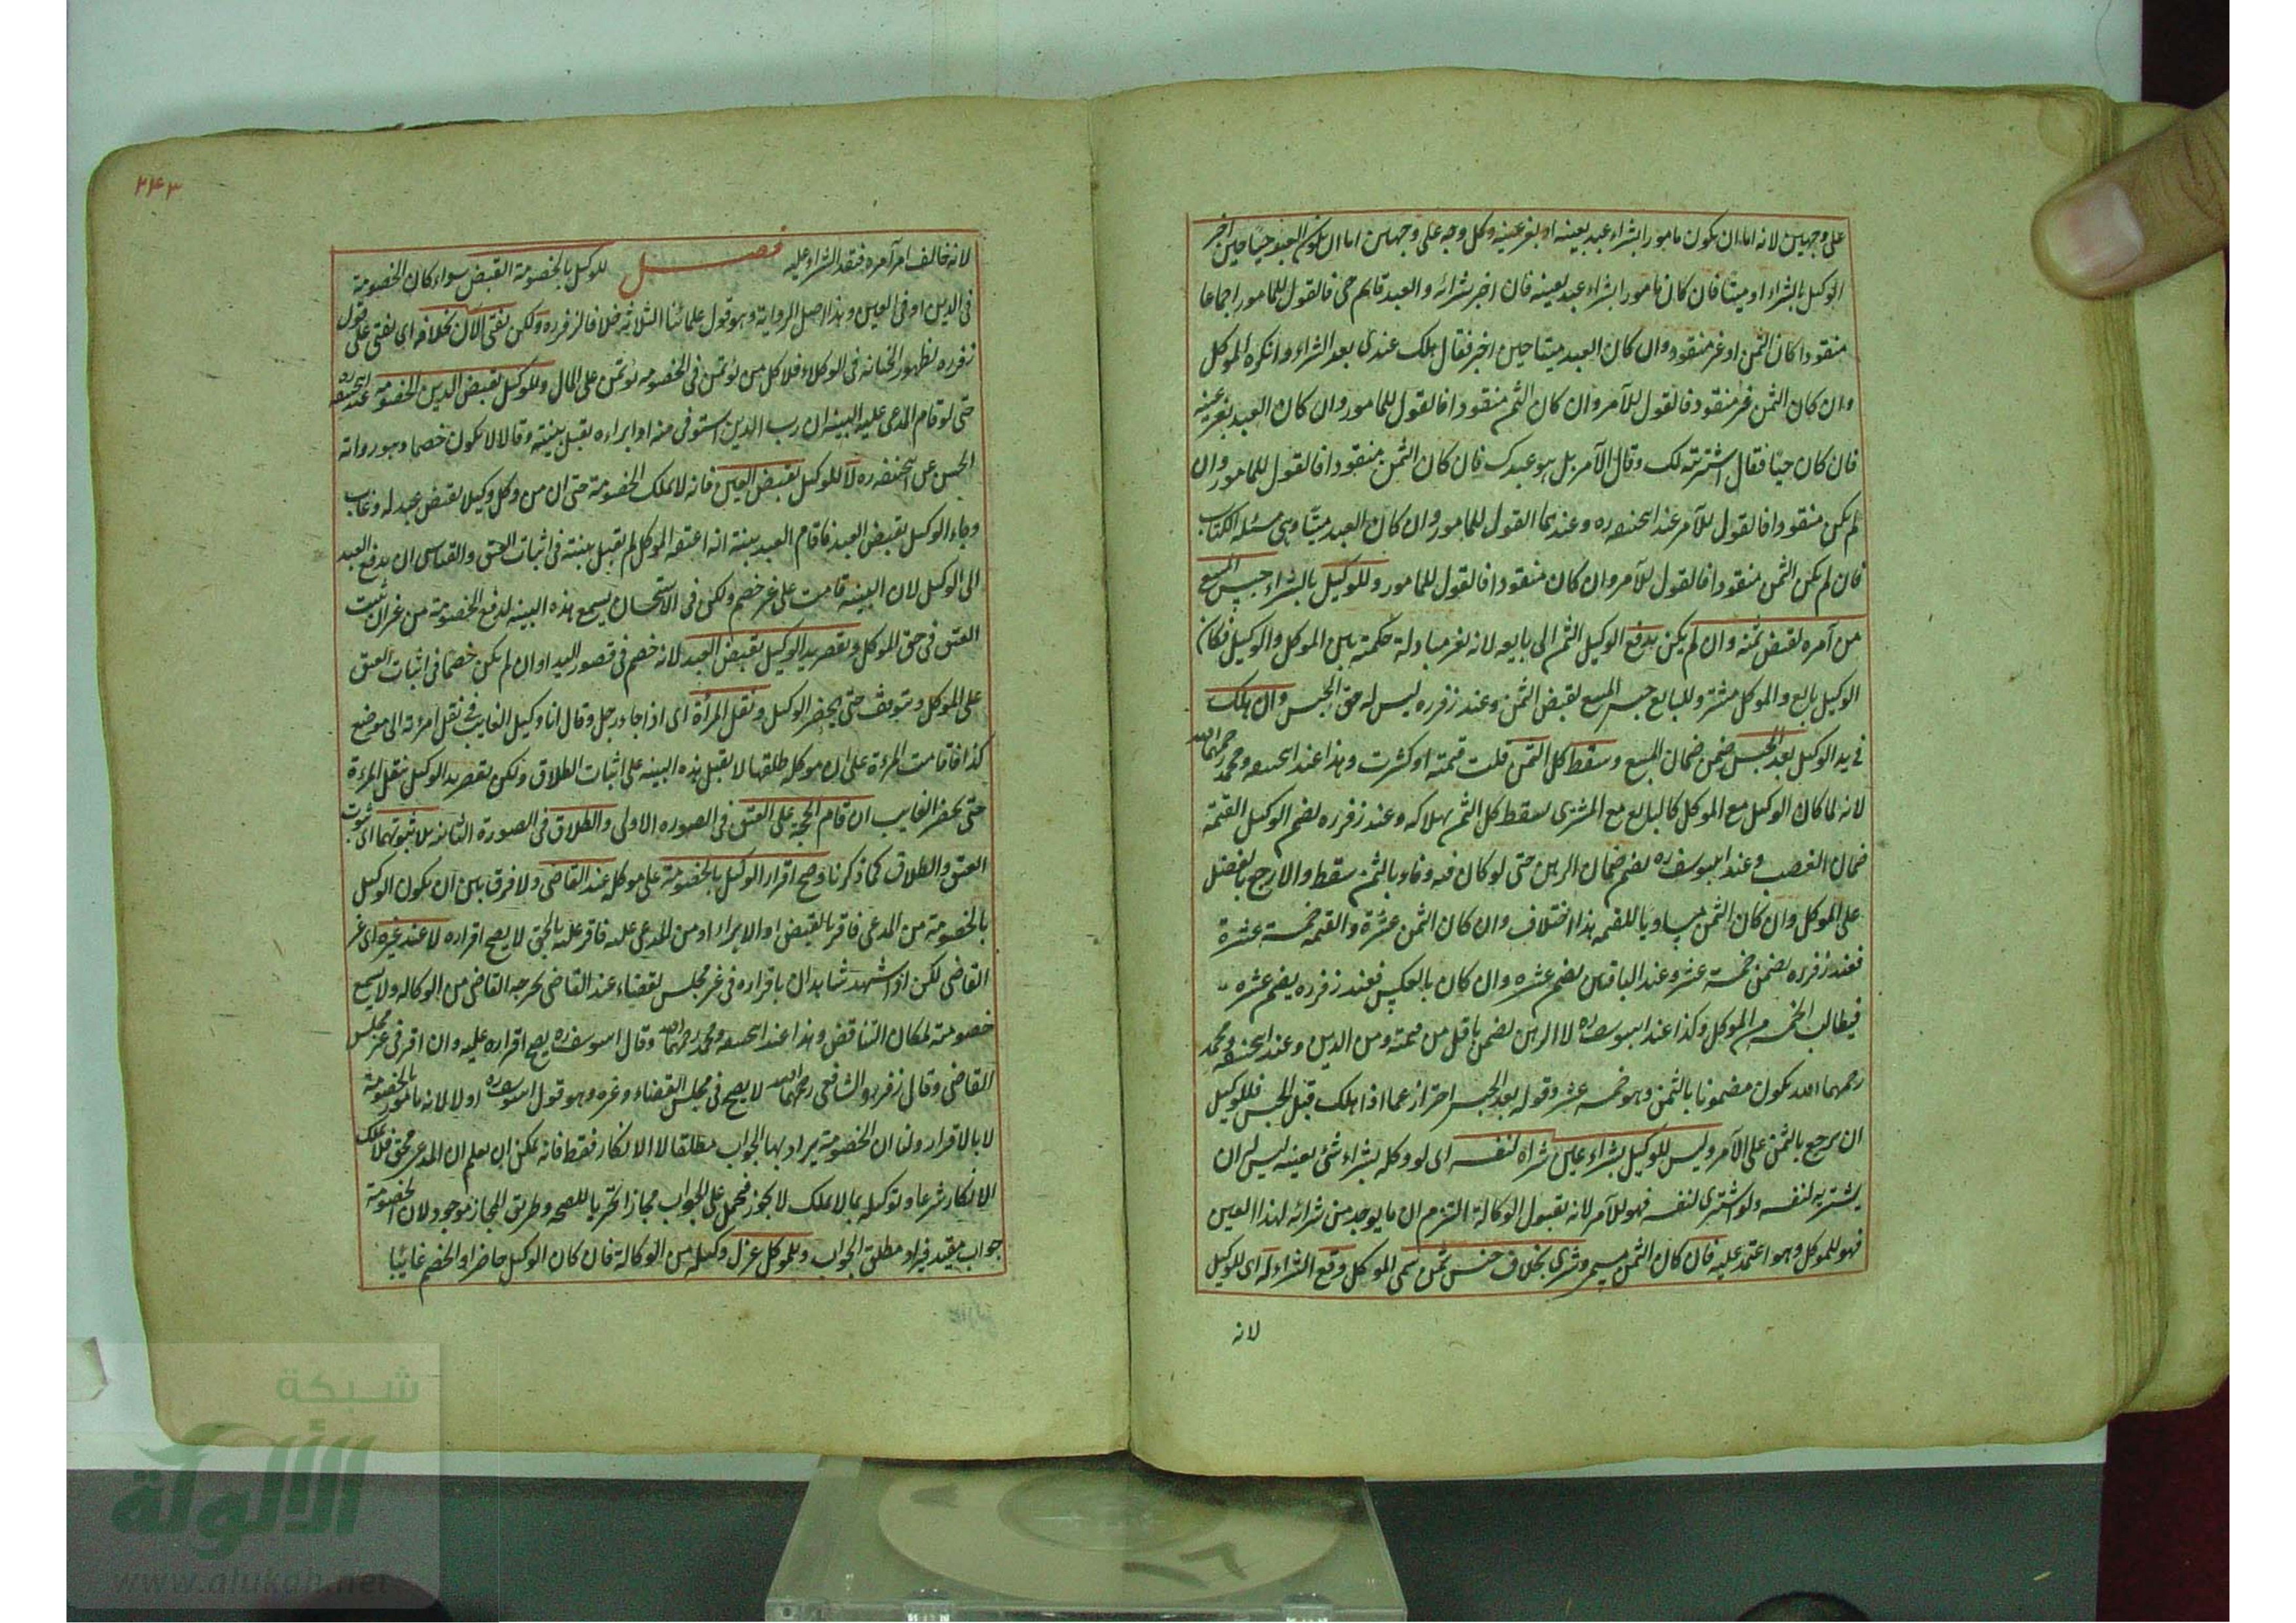 على وجهين لانه اما ان يكون مامورا بشراء عبد بعينه او بغير عينه وكل وجه على وجهين اما ان يكون العبد حيا حين اخبر
الوكيل بالشراء او ميتا فان كان مامورا بشراء عبد بعينه فان اخبر بشرائه والعبد قايم حى فالقول للمامور اجماعا
منقودا كان الثمن او غير منقود وان كان العبد ميتا حين اخبر فقال هلك عندى بعد الشراء وانكره الموكل
وان كان الثمن غير منقود فالقول للآمر وان كان الثمن منقودا فالقول للمامور وان كان العبد بغير عينه
فان كان حيا فقال اشتريته لك وقال الآمر بل هو عبدك فان كان الثمن منقودا فالقول للمامور وان
لم يكن منقودا فالقول للآمر عند ابحنفه ره وعندهما القول للمامور وان كان العبد ميتا وهى مسئله الكتاب
فان لم يكن الثمن منقودا فالقول للآمر وان كان منقودا فالقول للمامور وللوكيل بالشراء حبس المبيع
من آمره لقبض ثمنه وان لم يكن يدفع الوكيل الثمن الى بايعه لانه يعز مبادلة حكمته بين الموكل والوكيل فكان
الوكيل بايع والموكل مشتر وللبايع حبس المبيع لقبض الثمن وعند زفر ره ليس له حق الحبس وان هلك
فى يد الوكيل بعد الحبس ضمن ضمان المبيع وسقط كل الثمن قلت قيمته او كثرت وهذا عند ابحنفه ومحمد رحمهما الله
لانه لما كان الوكيل مع الموكل كالبايع مع المشترى يسقط كل الثمن بهلاكه وعند زفر ره يضمن الوكيل القيمة
ضمان الغصب وعند ابيوسف ره يضمن ضمان الرهن حتى لو كان فيه وفاء بالثمن سقط والا رجع بالفضل
على الموكل وان كان الثمن مساويا للقيمه هذا اختلاف وان كان الثمن عشرة والقيمه خمسة عشرة
فعند زفر ره يضمن خمسة عشر وعند الباقين يضمن عشره وان كان بالعكس فعند زفر ره يضمن عشره
فيطالب الخمسة من الموكل وكذا عند ابيوسف ره لا الرهن يضمن باقل من قيمته ومن الدين وعند ابحنفه ومحمد
رحمهما الله يكون مضمونا بالثمن وهو خمسه عشر وقوله بعد الحبس احتراز عما اذا هلك قبل الحبس فللوكيل
ان يرجع بالثمن على الآمر وليس للوكيل بشراء عين شراه لنفسه اى لو وكله بشراء شئ بعينه ليس ان
يشتريه لنفسه ولو اشترى لنفسه فهو للآمر لانه بقبول الوكالة التزم ان ما يوجد من شرائه لهذا العين
فهو للموكل وهو اعتمد عليه فان كان الثمن يسمى وشرى بخلاف جنس ثمن سمى الموكل وقع الشراء له اى للوكيل
لانه
٢٤٣
لانه خالف امر آمره فنفذ الشراء عليه فصل للوكيل بالخصومة القبض سواء كان الخصومة
فى الدين او فى العين وهذا اصل الرواية وهو قول علمائنا الثلاثه خلافا لزفر ره ولكن يفتى الآن بخلافه اى يفتى على قول
زفر ره لظهور الخيانه فى الوكلاء فلا كل من يؤتمن فى الخصومه يؤتمن على المال وللوكيل بقبض الدين الخصومة عند ابحنفه ره
حتى لو قام المدعى عليه البينه ان رب الدين استوفى منه او ابراءه يقبل بينته وقالا لا يكون خصما وهو رواته
الحسن عن ابحنفه ره لا للوكيل بقبض العين فانه لا يملك الخصومة حتى ان من وكل وكيل بقبض عبد له وغاب
وجاء الوكيل بقبض العبد فاقام العبد بينة انه اعتقه الموكل لم تقبل بينته فى اثبات العتق والقياس ان يدفع العبد
الى الوكيل لان البينه قامت على غير خصم ولكن فى الاستحسان يسمع هذه البينه لدفع الخصومة من غير ان يثبت
العتق فى حق الموكل وبقصر يد الوكيل بقبض العبد لانه خصم فى قصور اليد او ان لم يكن خصما فى اثبات العتق
على الموكل وتتوقف حتى يحضر الوكيل ونقل المرأة اى اذا جاء رجل وقال انا وكيل الغايب فى نقل امرءته الى موضع
كذا فاقامت المرءة على ان موكله طلقها لا يقبل هذه البينه على اثبات الطلاق ولكن يقصر يد الوكيل بنقل المرءة
حتى يحضر الغايب ان قام الحجة على العتق فى الصوره الاولى والطلاق فى الصورة الثانيه بلا ثبوتهما اى ثبوت
العتق والطلاق كما ذكرنا وصح اقرار الوكيل بالخصومة على موكله عند القاضى ولا فرق بين ان يكون الوكيل
بالخصومة من المدعى فاقر بالقبض او الابراء او من المدعى عليه فاقر عليه بالحق لا يصح اقراره لا عند غيره اى غير
القاضى لكن اذا شهد شاهدان باقراره فى غير مجلس لقضاء عند القاضى يخرجه القاضى من الوكاله ولا يسمع
خصومة لمكان التناقض وهذا عند ابحنفه ومحمد رحمهما الله وقال ابيوسف ره يصح اقراره عليه وان اقر فى غير مجلس
القاضى وقال زفر والشافعى رحمهما الله لا يصح فى مجلس القضاء وغيره وهو قول ابيوسف ره اولا لانه مامور بالخصومة
لا بالاقرار ولنا ان الخصومة يراد بها الجواب مطلقا لا الانكار فقط فانه يمكن ان يعلم ان المدعى محق فلا يملك
الانكار شرعا وتوكيله بما لا يملك لا يجوز فيحمل على الجواب مجازا تحريا للصحه وطريق المجاز موجود لان الخصومة
جواب مقيد فيراد مطلق الجواب وللموكل عزل وكيله من الوكالة فان كان الوكيل حاضرا والخصم غائبا
شبكة
الألوكة
www.alukah.net